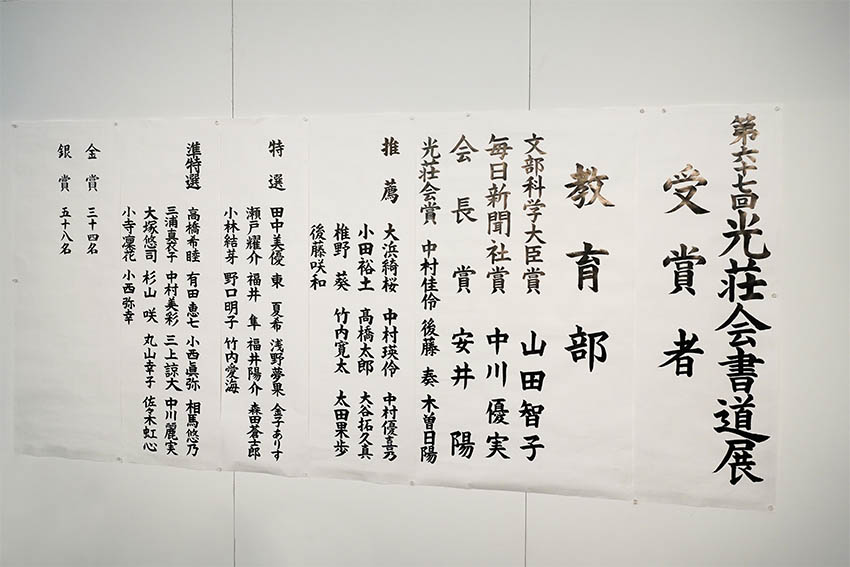 第六十七回光荘会書道展
受賞者
教育部
文部科学大臣賞 山田智子
毎日新聞社賞 中川優実
会長賞 安井陽
光荘会賞 中村佳伶 後藤奏 木曽日陽
推薦 大浜綺桜 中村瑛伶 中村優喜乃
小田裕土 髙橋太郎 大谷拓久真
椎野葵 竹内寛太 太田果歩
後藤咲和
特選 田中美優 東夏希 浅野夢果 金子ありす
瀬戸耀介 福井隼 福井陽介 森田蒼士郎
小林結芽 野口明子 竹内愛海
準特選 高橋希睦 有田恵七 小西眞弥 相馬悠乃
三浦真衣子 中村美彩 三上諒大 中川麗実
大塚悠司 杉山咲 丸山幸子 佐々木虹心
小寺凜花 小西弥幸
金賞 三十四名
銀賞 五十八名